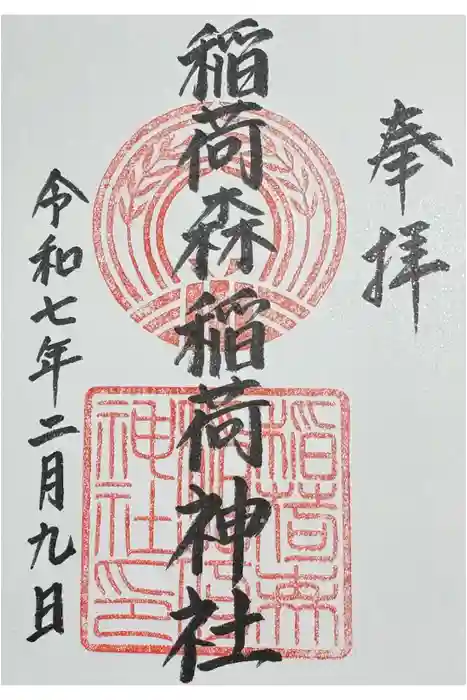 奉拝
稲荷森稲荷神社
令和七年二月九日
稲荷森
稲荷
神社印